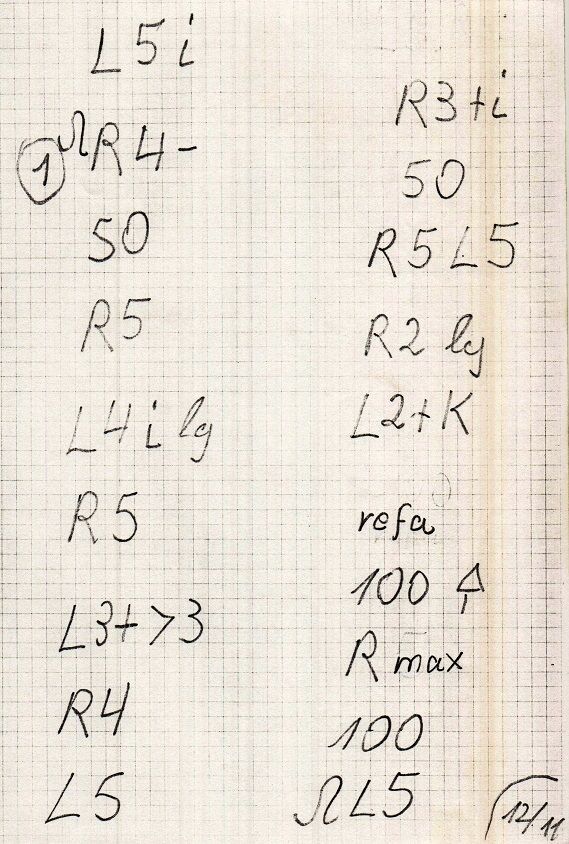 L5i
1 ΩR4-
50
R5
L4i lg
R5
L3+>3
R4
L5
R3+i
50
R5 L5
R2 lg
L2+K
refa
100
R max
100
ΩL5
12/11